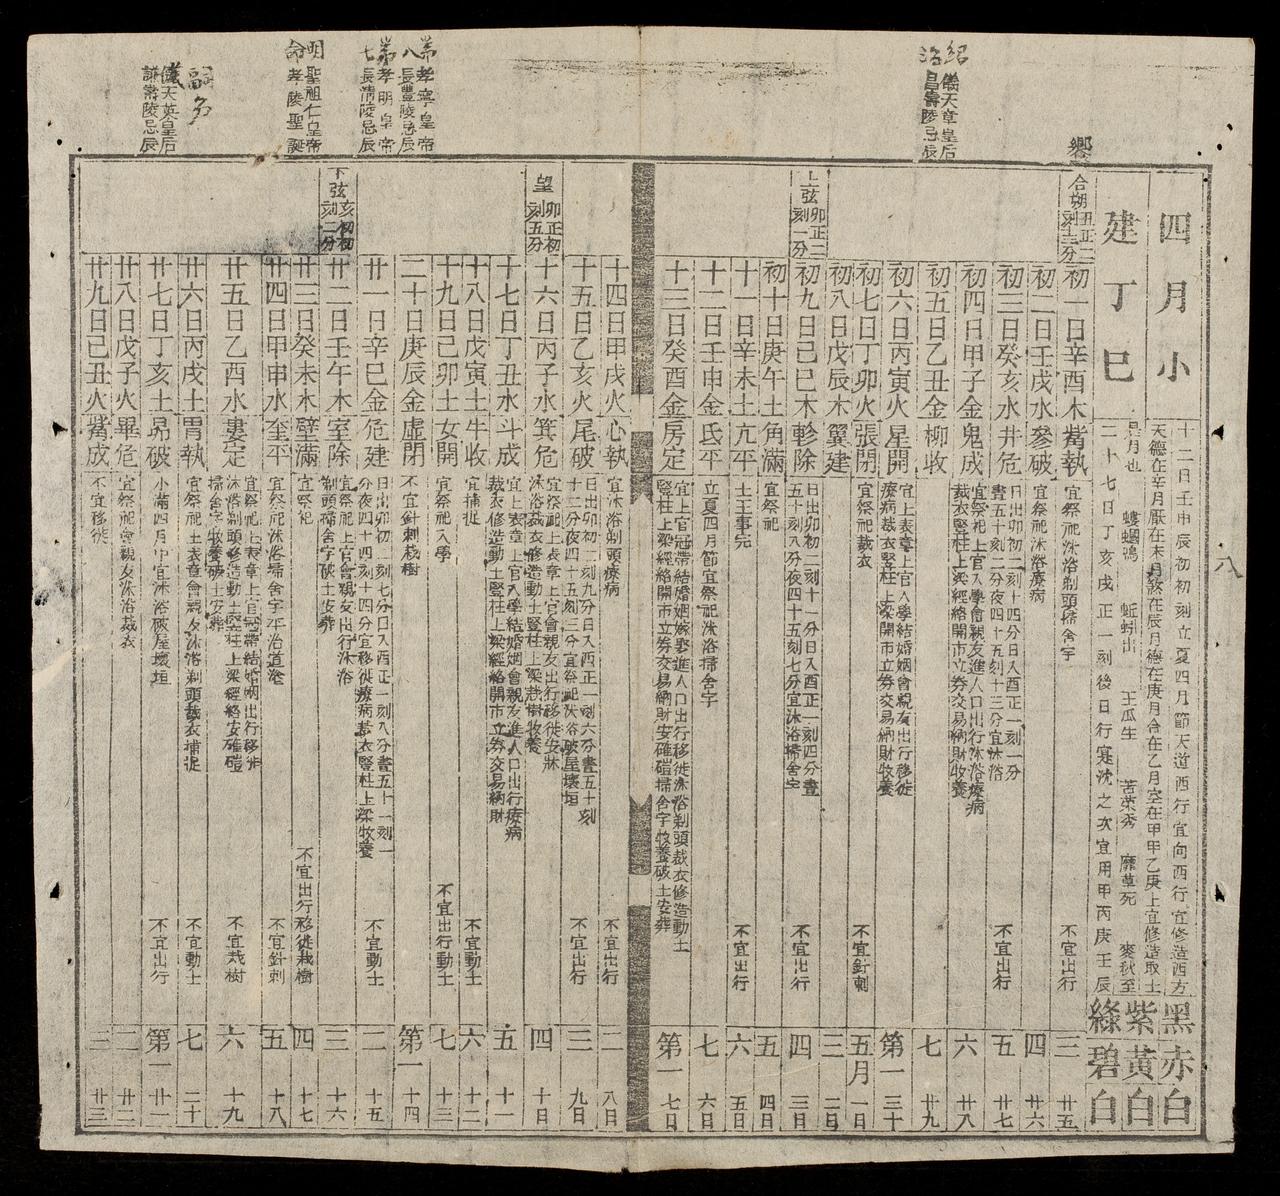 饗
紹治
儀天章皇后
昌壽陵忌辰
第八
孝寧皇帝
長豐陵忌辰
第七
孝明皇帝
長清陵忌辰
明命
聖祖仁皇帝
孝陵聖誕
嗣
儀天英皇后
謙壽陵忌辰
八
四月小
建丁巳
十二日壬申辰初初刻立夏四月節天道西行宜向西行宜修造西方
天德在辛月厭在未月煞在辰月德在庚月合在乙月空在甲甲乙庚上宜修造取土
是月也 螻蟈鳴 蚯蚓出 王瓜生 苦菜秀 靡草死 麥秋至
二十七日丁亥戌正一刻後日行寔沈之次宜用甲丙庚壬辰
黑赤白
紫黃白
綠碧白
合朔丑正二刻十三分
初一日辛酉木觜執 宜祭祀沐浴剃頭掃舍宇 不宜出行 三 廿五
初二日壬戌水參破 宜祭祀沐浴療病 四 廿六
初三日癸亥水井危 日出卯初二刻十四分日入酉正一刻一分
晝五十刻二分夜四十五刻十三分宜沐浴 不宜出行 五 廿七
初四日甲子金鬼成 宜祭祀上官入學會親友進人口出行沐浴療病
裁衣豎柱上梁經絡開市立券交易納財牧養 六 廿八
初五日乙丑金柳收 七 廿九
初六日丙寅火星開 宜上表章上官入學結婚姻會親友出行移徙
療病裁衣豎柱上梁開市立券交易納財牧養 第一 三十
初七日丁卯火張閉 宜祭祀裁衣 不宜針刺 五月 一日
初八日戊辰木翼建 三 二日
上弦卯正二刻一分
初九日己巳木軫除 日出卯初二刻十一分日入酉正一刻四分晝
五十刻八分夜四十五刻七分宜沐浴掃舍宇 不宜出行 四 三日
初十日庚午土角滿 宜祭祀 五 四日
十一日辛未土亢平 土王事完 不宜出行 六 五日
十二日壬申金氐平 立夏四月節宜祭祀沐浴掃舍宇 七 六日
十三日癸酉金房定 宜上官冠帶結婚姻嫁娶進人口出行移徙沐浴剃頭裁衣修造動土
豎柱上梁經絡開市立券交易納財安碓磑掃舍宇牧養破土安葬 第一 七日
十四日甲戌火心執 宜沐浴剃頭療病 不宜出行 二 八日
十五日乙亥火尾破 日出卯初二刻九分日入酉正一刻六分晝五十刻
十二分夜四十五刻三分宜祭祀沐浴破屋壞垣 不宜出行 三 九日
望卯正初刻五分
十六日丙子水箕危 宜祭祀上表章上官會親友出行移徙安牀
沐浴裁衣修造動土豎柱上梁栽樹牧養 四 十日
十七日丁丑水斗成 宜上表章上官入學結婚姻會親友進人口出行療病
裁衣修造動土豎柱上梁經絡開市立券交易納財 五 十一
十八日戊寅土牛收 宜捕捉 不宜動土 六 十二
十九日己卯土女開 宜祭祀入學 不宜出行動土 七 十三
二十日庚辰金虛閉 不宜針刺栽樹 第一 十四
廿一日辛巳金危建 日出卯初二刻七分日入酉正一刻八分晝五十一刻一
分夜四十四刻十四分宜移徙療病裁衣豎柱上梁牧養 不宜動土 二 十五
下弦亥初初刻二分
廿二日壬午木室除 宜祭祀上官會親友出行沐浴
剃頭掃舍宇破土安葬 三 十六
廿三日癸未木壁滿 宜祭祀 不宜出行移徙栽樹 四 十七
廿四日甲申水奎平 宜祭祀沐浴掃舍宇平治道塗 不宜針刺 五 十八
廿五日乙酉水婁定 宜祭祀上表章上官冠帶結婚姻出行移徙
沐浴剃頭修造動土豎柱上梁經絡安碓磑
掃舍宇牧養破土安葬 不宜栽樹 六 十九
廿六日丙戌土胃執 宜祭祀上表章會親友沐浴剃頭裁衣捕捉 不宜動土 七 二十
廿七日丁亥土昴破 小滿四月中宜沐浴破屋壞垣 不宜出行 第一 廿一
廿八日戊子火畢危 宜祭祀會親友沐浴裁衣 二 廿二
廿九日己丑火觜成 不宜移徙 三 廿三